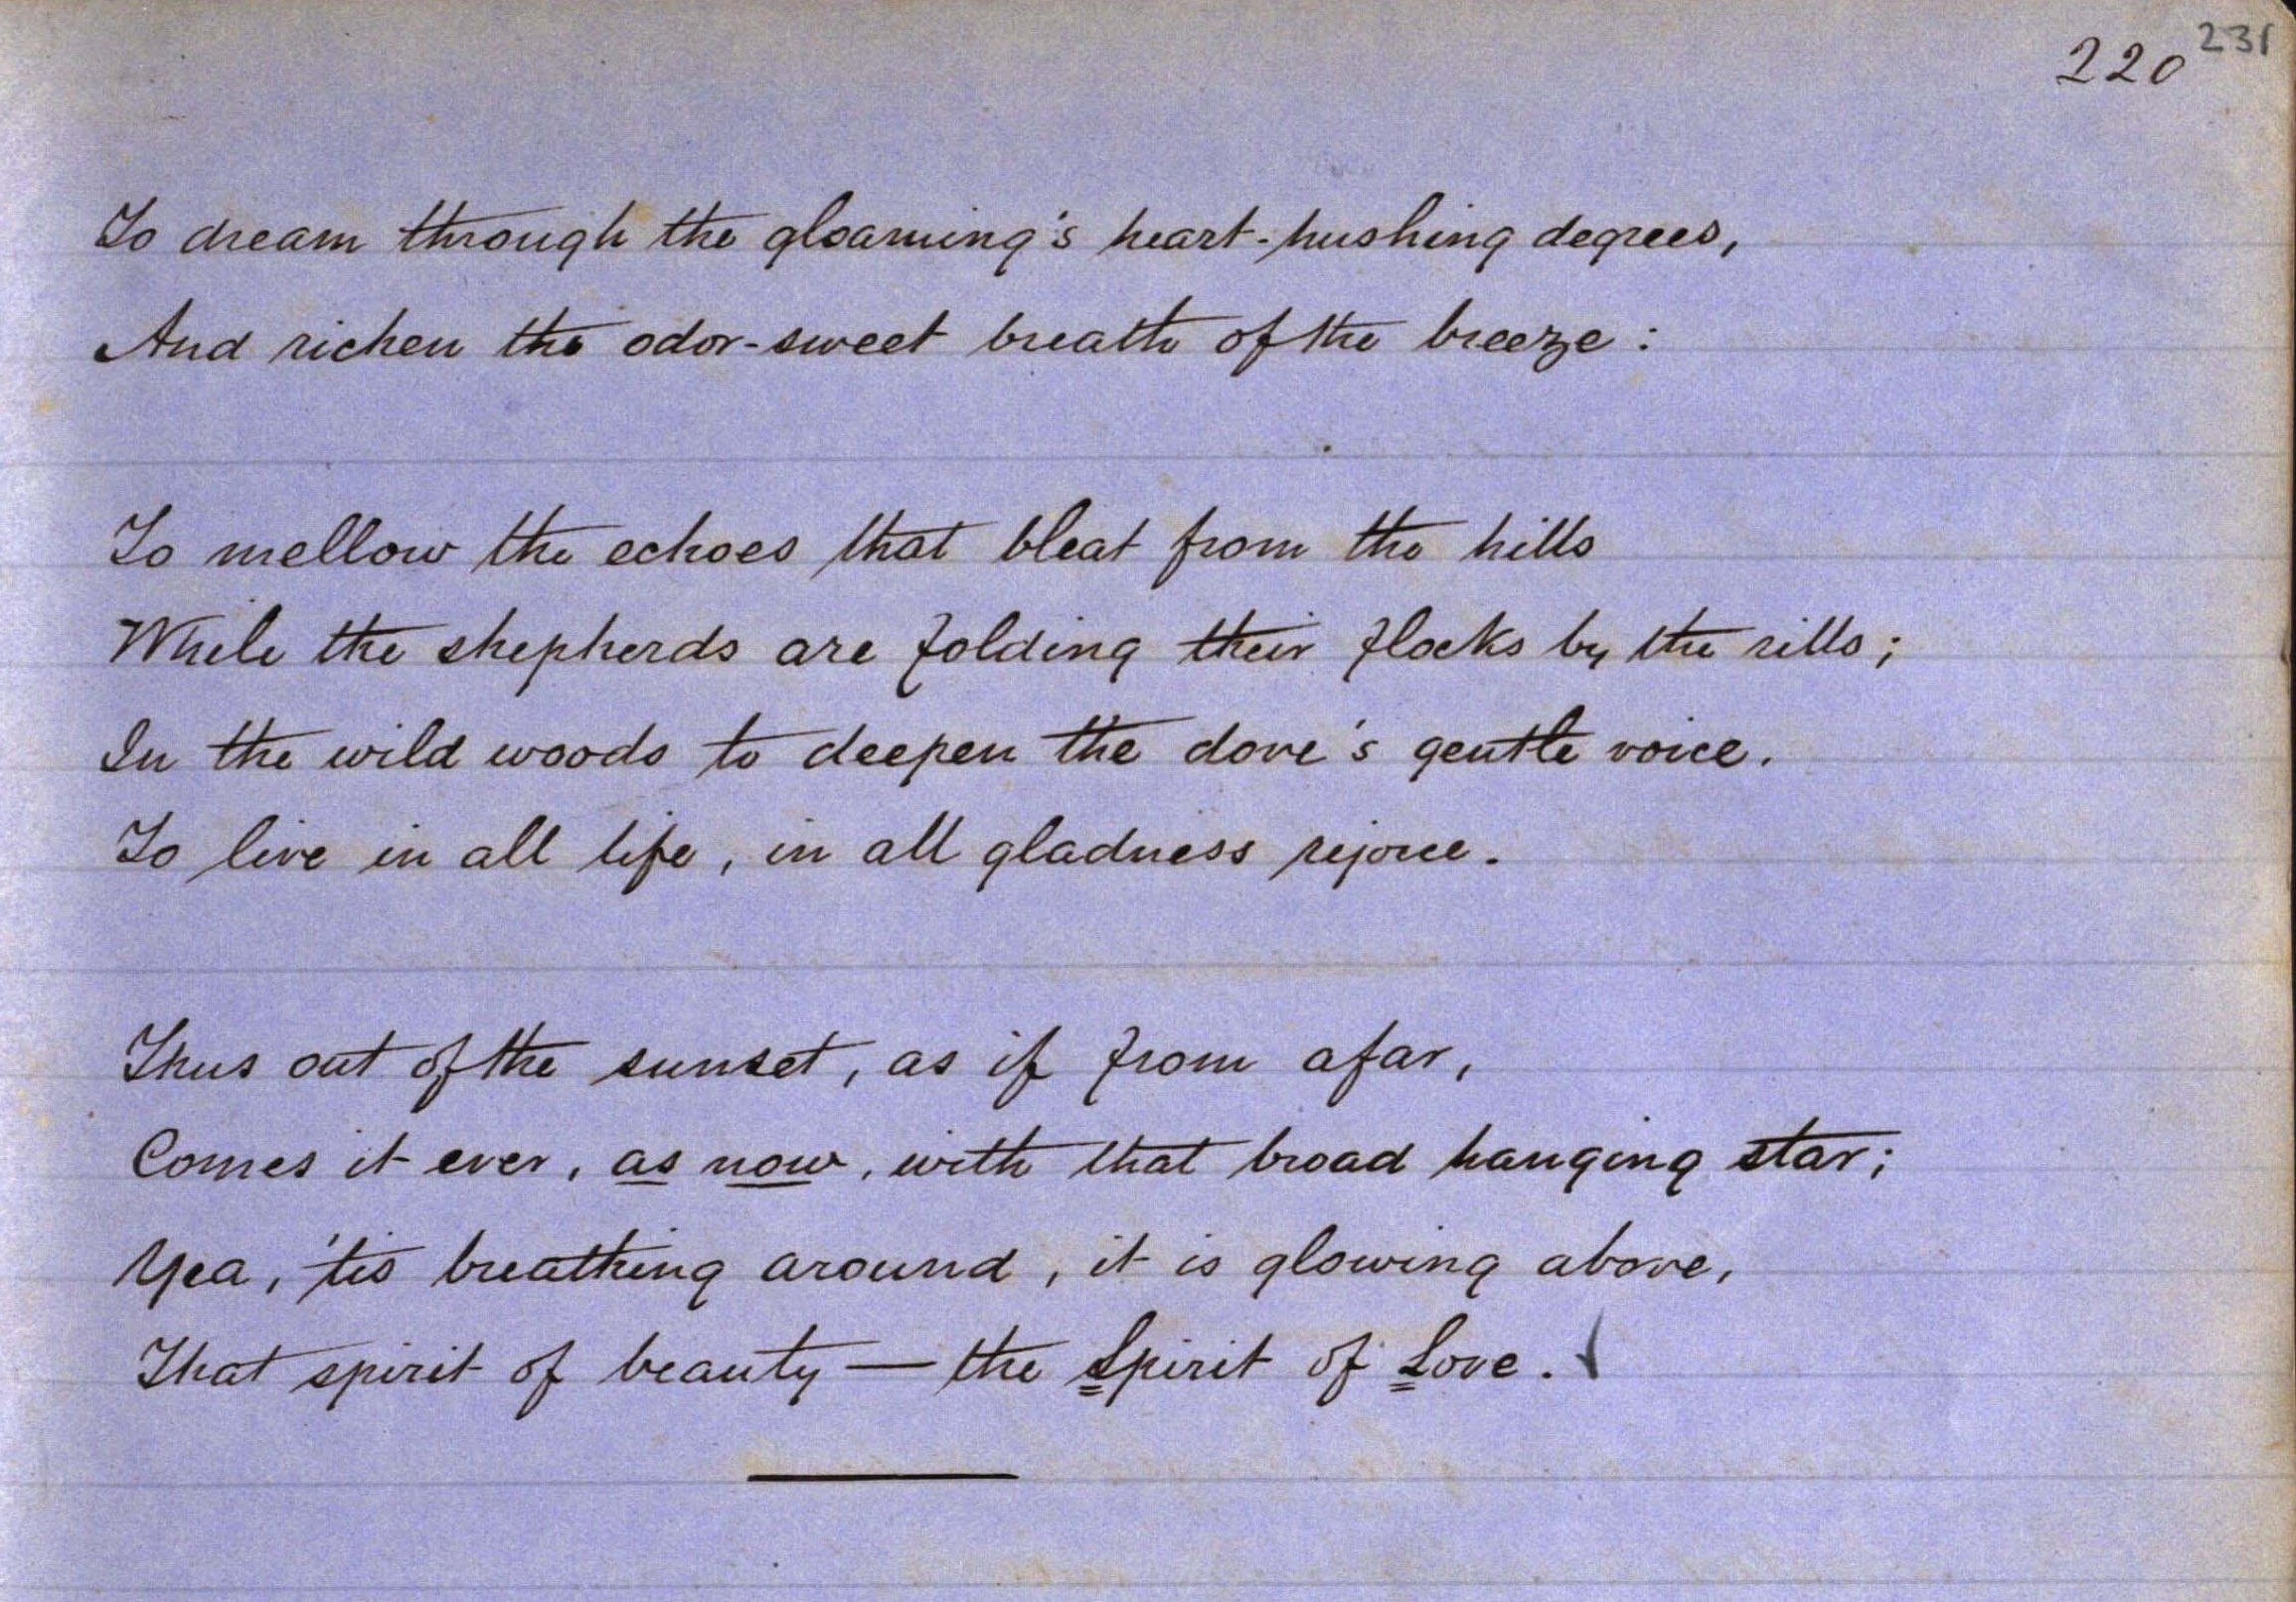 220 231
To dream through the gloaming's heart-hushing degrees,
And richen the odor-sweet breath of the breeze:
To mellow the echoes that bleat from the hills
While the shepherds are folding their flocks by the rills;
In the wild woods to deepen the dove's gentle voice.
To live in all life, in all gladness rejoice.
Thus out of the sunset, as if from afar,
Comes it ever, as now, with that broad hanging star;
Yea, 'tis breathing around, it is glowing above,
That spirit of beauty — the Spirit of Love.